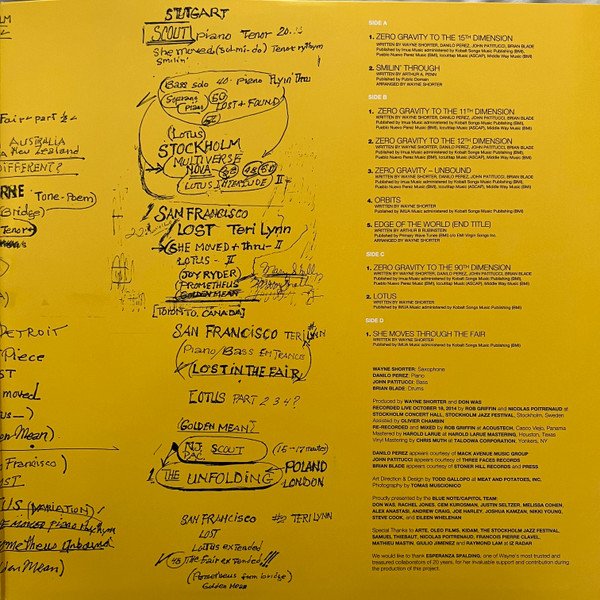 Fair - part
AUSTRALIA
New Zealand
DIFFERENT?
Tone-Poem)
Bridge)
Tenor
DETROIT
Piece
ST
moved
us_)
en-Mean)
Francisco)
US (VARIATION)
ometheus Unbound
den Mean)
STUTGART
SCOUT piano Tenor 20
She moved (sol-mi-do) Tenor rythym
Smilin'
Bass solo 40. piano Rym Thru
Soprano Piano 60 LOST & FOUND
(LOTUS)
STOCKHOLM
MULTIVERSE
NOVA
LOTUS INTERLUDE II
SAN FRANCISCO
LOST Teri Lynn
SHE MOVED + Thru - II
LOTUS - II
(JOY RYDER)
PROMETHEUS
GOLDEN MEAN
[TORONTO, CANADA]
SAN FRANCISCO TERI LYNN
Piano/Bass
(LOST IN THE FAIR)
LOTUS PART 2 3 4?
(GOLDEN MEAN)
N.J. PAC. SCOUT (15-17 minutes)
THE UNFOLDING POLAND
LONDON
SAN FRANCISCO #2 TERI LYNN
LOST
LOTUS extended
The Fair extended!!!
(Prometheus from bridge)
Golden Mean
SIDE A
1. ZERO GRAVITY TO THE 15TH DIMENSION
WRITTEN BY WAYNE SHORTER, DANILO PEREZ, JOHN PATITUCCI, BRIAN BLADE
Published by Irkua Music administered by Kobalt Songs Music Publishing (BMI),
Pueblo Nuevo Perez Music (BMI), Iccutltap Music (ASCAP), Middle Way Music (BMI)
2. SMILIN' THROUGH
WRITTEN BY ARTHUR A. PENN
Published by Public Domain
ARRANGED BY WAYNE SHORTER
SIDE B
1. ZERO GRAVITY TO THE 11TH DIMENSION
WRITTEN BY WAYNE SHORTER, DANILO PEREZ, JOHN PATITUCCI, BRIAN BLADE
Published by Irkua Music administered by Kobalt Songs Music Publishing (BMI),
Pueblo Nuevo Perez Music (BMI), Iccutltap Music (ASCAP), Middle Way Music (BMI)
2. ZERO GRAVITY TO THE 12TH DIMENSION
WRITTEN BY WAYNE SHORTER, DANILO PEREZ, JOHN PATITUCCI, BRIAN BLADE
Published by Irkua Music administered by Kobalt Songs Music Publishing (BMI),
Pueblo Nuevo Perez Music (BMI), Iccutltap Music (ASCAP), Middle Way Music (BMI)
3. ZERO GRAVITY – UNBOUND
WRITTEN BY WAYNE SHORTER, DANILO PEREZ, JOHN PATITUCCI, BRIAN BLADE
Published by Irkua Music administered by Kobalt Songs Music Publishing (BMI),
Pueblo Nuevo Perez Music (BMI), Iccutltap Music (ASCAP), Middle Way Music (BMI)
4. ORBITS
WRITTEN BY WAYNE SHORTER
Published by IMUA Music administered by Kobalt Songs Music Publishing (BMI)
5. EDGE OF THE WORLD (END TITLE)
WRITTEN BY ARTHUR B RUBINSTEIN
Published by Primary Wave Tunes (BMI) c/o EMI Virgin Songs Inc.
ARRANGED BY WAYNE SHORTER
SIDE C
1. ZERO GRAVITY TO THE 90TH DIMENSION
WRITTEN BY WAYNE SHORTER, DANILO PEREZ, JOHN PATITUCCI, BRIAN BLADE
Published by Irkua Music administered by Kobalt Songs Music Publishing (BMI),
Pueblo Nuevo Perez Music (BMI), Iccutltap Music (ASCAP), Middle Way Music (BMI)
2. LOTUS
WRITTEN BY WAYNE SHORTER
Published by IMUA Music administered by Kobalt Songs Music Publishing (BMI)
SIDE D
1. SHE MOVES THROUGH THE FAIR
WRITTEN BY WAYNE SHORTER
Published by IMUA Music administered by Kobalt Songs Music Publishing (BMI)
WAYNE SHORTER: Saxophone
DANILO PEREZ: Piano
JOHN PATITUCCI: Bass
BRIAN BLADE: Drums
Produced by WAYNE SHORTER and DON WAS
RECORDED LIVE OCTOBER 18, 2014 by ROB GRIFFIN and NICOLAS POITRENAUD at
STOCKHOLM CONCERT HALL, STOCKHOLM JAZZ FESTIVAL, Stockholm, Sweden
Assisted by OLIVER CHAMBIN
RE-RECORDED and MIXED by ROB GRIFFIN at ACOUSTECH, Casco Viejo, Panama
Mastered by HAROLD LARUE at HAROLD LARUE MASTERING, Houston, Texas
Vinyl Mastering by CHRIS MUTH at TALOOWA CORPORATION, Yonkers, NY
DANILO PEREZ appears courtesy of MACK AVENUE MUSIC GROUP
JOHN PATITUCCI appears courtesy of THREE FACES RECORDS
BRIAN BLADE appears courtesy of STONER HILL RECORDS and PRESS
Art Direction & Design by TODD GALLOPO at MEAT AND POTATOES, INC.
Photography by TOMAS MUSCIONICO
Proudly presented by the BLUE NOTE/CAPITOL TEAM:
DON WAS, RACHEL JONES, CEM KUROSMAN, JUSTIN SELTZER, MELISSA COHEN,
ALEX ANASTAS, ANDREW CRAIG, JOE HARLEY, JORDEA KAMZAN, NIKKI YOUNG,
STEVE COOK, and EILEEN WHELEHAN
Special Thanks to ARTE, OLEO FILMS, KIDAM, THE STOCKHOLM JAZZ FESTIVAL,
SAMUEL THIEBAUT, NICOLAS POITRENAUD, FRANCOIS PIERRE CLAVEL,
MATHIEU MASTIN, GIULIO JIMENEZ and RAYMOND LAM at IZ RADAR
We would like to thank ESPERANZA SPALDING, one of Wayne's most trusted and
treasured collaborators of 20 years, for her invaluable support and contribution during
the production of this project.